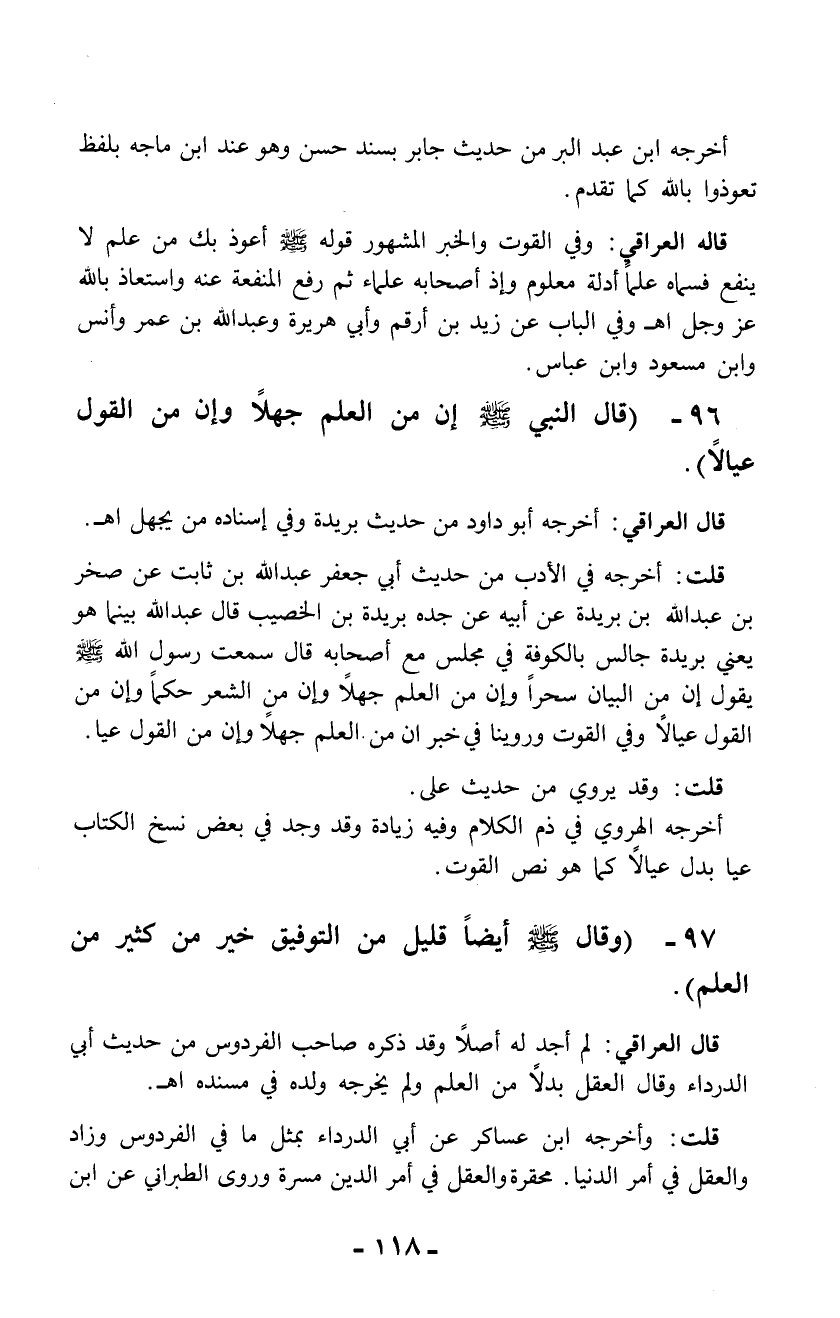 أخرجه ابن عبد البر من حديث جابر بسند حسن وهو عند ابن ماجه بلفظ
تعوذوا بالله كما تقدم.
قاله العراقي: وفي القوت والخبر المشهور قوله ﷺ أعوذ بك من علم لا
ينفع فسماه علماً أدلة معلوم وإذ أصحابه علماء ثم رفع المنفعة عنه واستعاذ بالله
عز وجل اهـ وفي الباب عن زيد بن أرقم وأبي هريرة وعبدالله بن عمر وأنس
وابن مسعود وابن عباس.
٩٦ - (قال النبي ﷺ إن من العلم جهلاً وإن من القول
عيالاً).
قال العراقي: أخرجه أبو داود من حديث بريدة وفي إسناده من يجهل اهـ.
قلت: أخرجه في الأدب من حديث أبي جعفر عبدالله بن ثابت عن صخر
بن عبدالله بن بريدة عن أبيه عن جده بريدة بن الخصيب قال عبدالله بينما هو
يعني بريدة جالس بالكوفة في مجلس مع أصحابه قال سمعت رسول الله ﷺ
يقول إن من البيان سحراً وإن من العلم جهلاً وإن من الشعر حكماً وإن من
القول عيالاً وفي القوت وروينا في خبر ان من العلم جهلاً وإن من القول عيا.
قلت: وقد يروي من حديث على.
أخرجه الهروي في ذم الكلام وفيه زيادة وقد وجد في بعض نسخ الكتاب
عيا بدل عيالاً كما هو نص القوت.
٩٧ - (وقال ﷺ أيضاً قليل من التوفيق خير من كثير من
العلم).
قال العراقي: لم أجد له أصلاً وقد ذكره صاحب الفردوس من حديث أبي
الدرداء وقال العقل بدلاً من العلم ولم يخرجه ولده في مسنده اهـ.
قلت: وأخرجه ابن عساكر عن أبي الدرداء بمثل ما في الفردوس وزاد
والعقل في أمر الدنيا. محقرة والعقل في أمر الدين مسرة وروى الطبراني عن ابن
- ١١٨ -